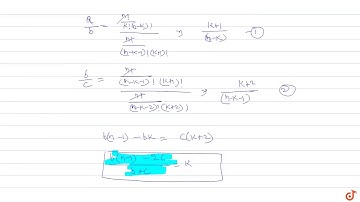 a/b = (n! / k!(n-k)!) / (n! / (n-k-1)!(k+1)!) , (k+1)/(n-k) - ①
b/c = (n! / (n-k-1)!(k+1)!) / (n! / (n-k-2)!(k+2)!) , (k+2)/(n-k-1) ②
b(n-1) - bk = c(k+2)
(b(n-1) - 2c) / (b+c) = k